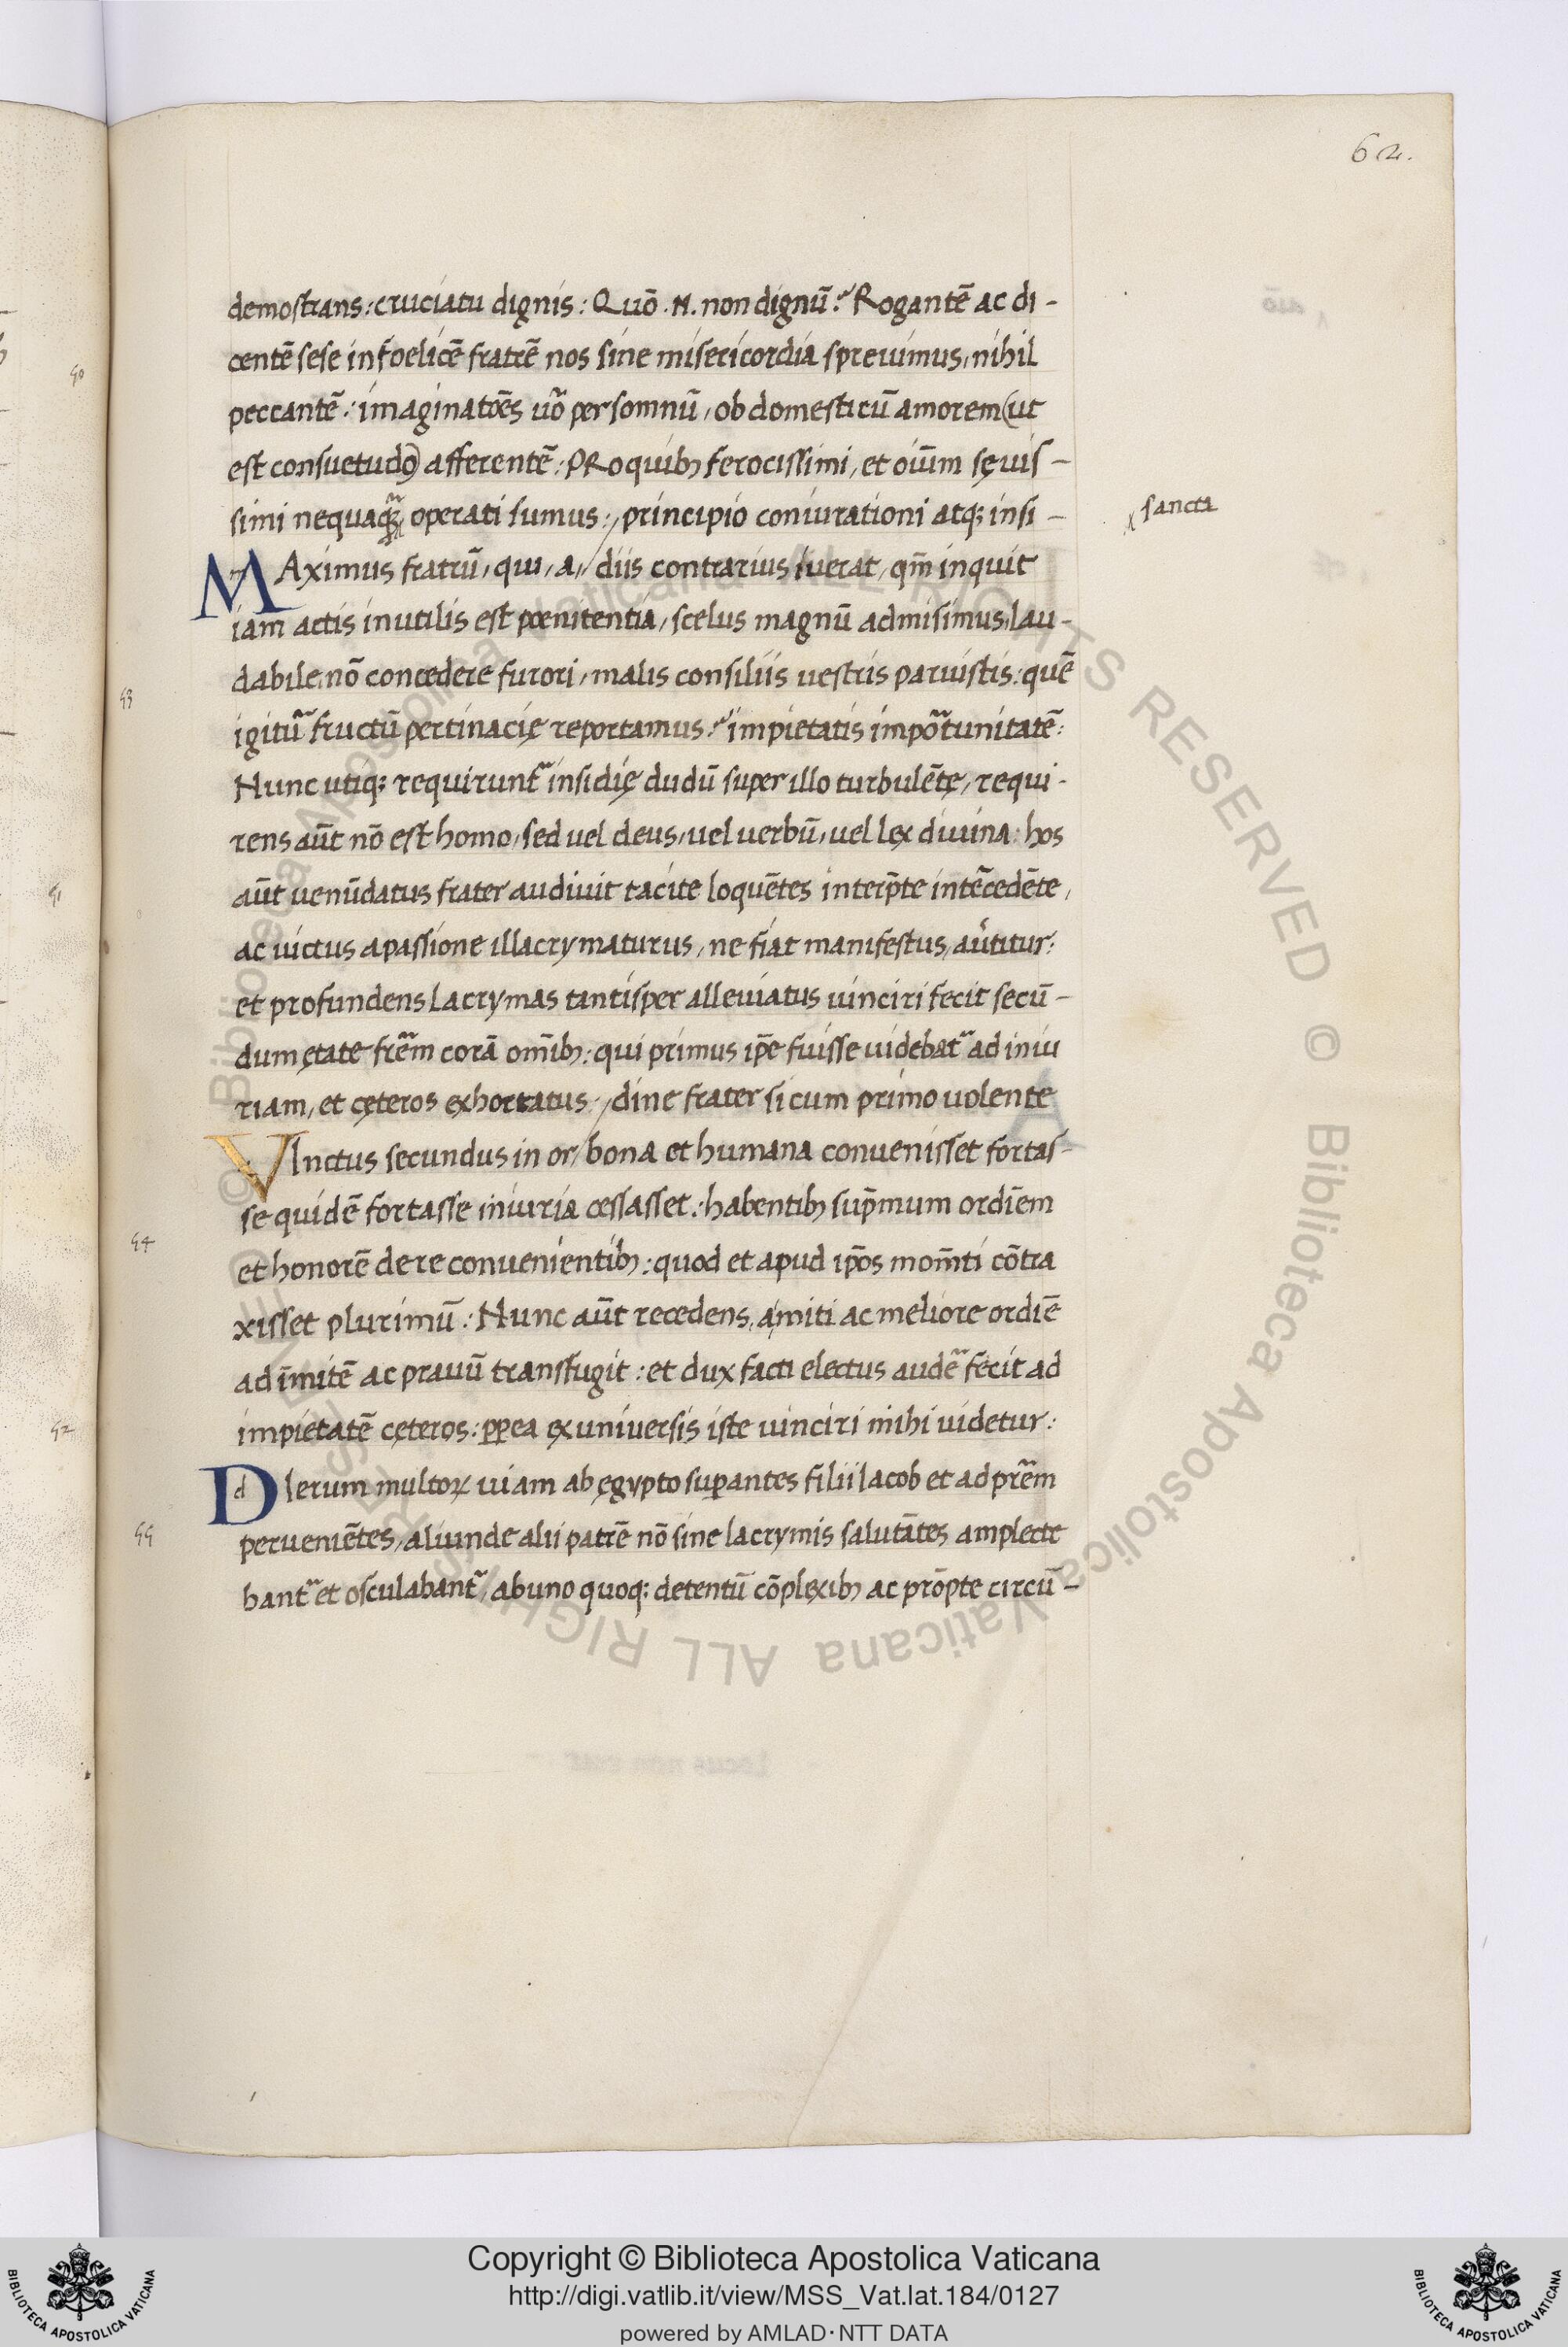 62.
demostrans: cruciatu dignis: Quō .N. non dignū? Rogantē ac di-
centē sese infoelicē fratrē nos sine misericordia spreuimus, nihil
peccantē: imaginatōes uo᷑ per somnū, ob domesticū amorem (ut
est consuetudo) afferentē: PRo quib; ferocissimi, et oium̄ sęuis-
simi nequaq̃ operati sumus: / principio coniurationi atq; insi-
sancta
MAximus fratrū, qui, a, / diis contrarius fuerat, qm̄ inquit
iam actis inutilis est pœnitentia, scelus magnū admisimus, lau-
53
dabile nō concedere furori, malis consiliis uestris paruistis: quē
igitu᷑ fructū pertinacię reportamus? impietatis impo᷑tunitatē:
Nunc utiq; requirunt᷑ insidię dudū super illo turbulētę, requi-
rens aūt nō est homo, sed uel deus, uel uerbū, uel lex diuina: hos
aūt uenūdatus frater audiuit tacite loquētes interp̄te intēcedēte,
ac uictus a passione illacrymaturus, ne fiat manifestus, aūtitur:
et profundens lacrymas tantisper alleuiatus uinciri fecit secū-
dum ętate fr̄em corā omīb;: qui primus ip̄e fuisse uidebat᷑ ad iniu
riam, et cęteros exhortatus: / dine frater si cum primo uolente
VInctus secundus in or/ bona et humana conuenisset fortas-
se quidē fortasse iniuria cessasset: habentib; sup̄mum ordiēm
54
et honorē de re conuenientib;: quod et apud ip̄os mom̄ti cōtra
xisset plurimū: Nunc aūt recedens, a miti ac meliore ordiē
ad īmitē ac prauū transfugit: et dux facti electus aude᷑ fecit ad
impietatē cęteros: pp̄ea ex uniuersis iste uinciri mihi uidetur:
DIerum multoꝝ uiam ab ęgypto sup̄antes filii Iacob et ad pr̄em
55
peruenietēs, aliunde alii patrē nō sine lacrymis salutātes amplecte
bant᷑ et osculabant᷑, ab uno quoq; detentū cōplexib; ac prōpte circū-
Copyright © Biblioteca Apostolica Vaticana
http://digi.vatlib.it/view/MSS_Vat.lat.184/0127
powered by AMLAD·NTT DATA